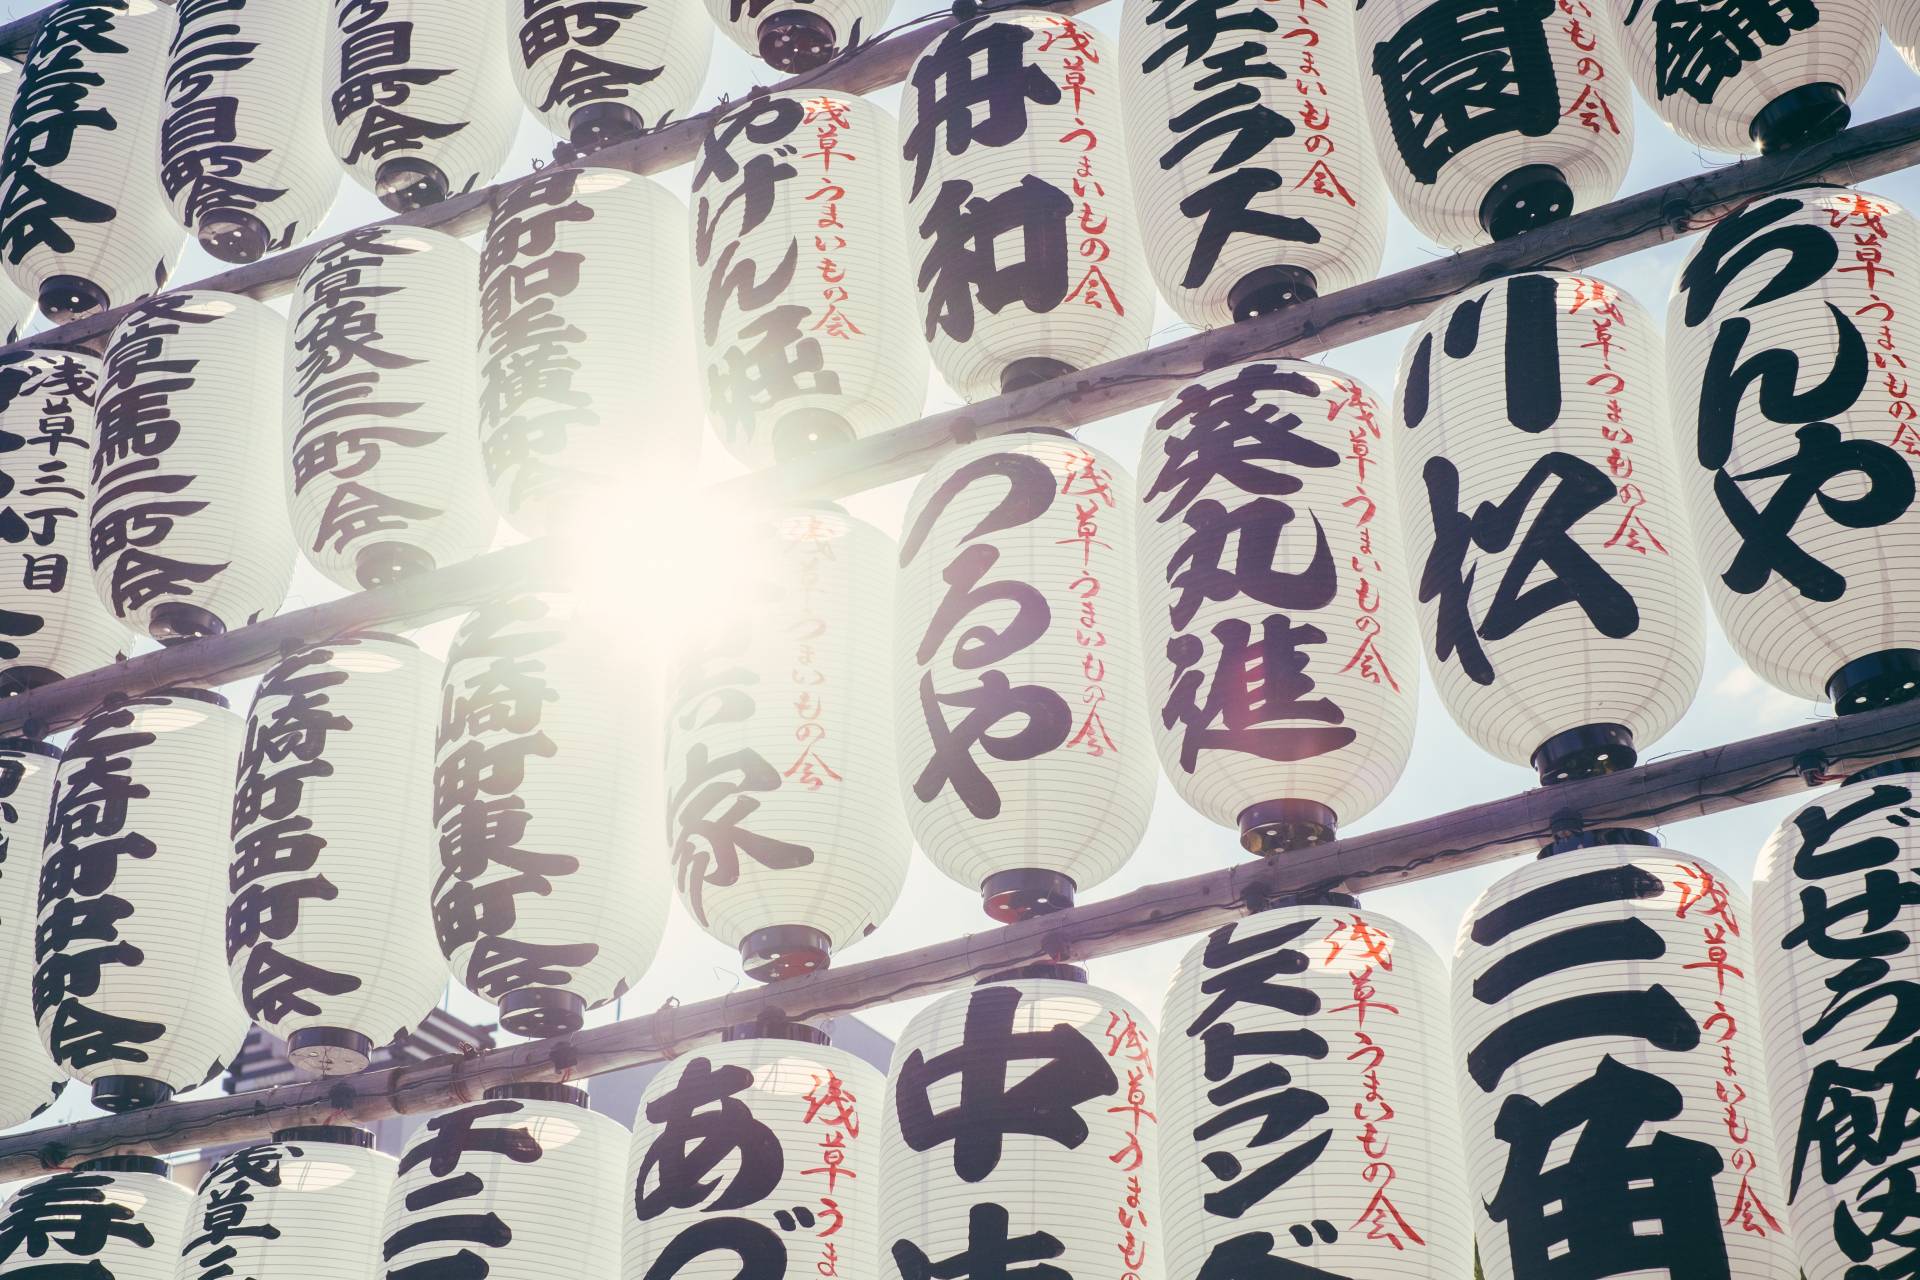 二町目町会
目町会
町会
浅草うまいもの会
やげん堀
浅草うまいもの会
舟和
浅草うまいもの会
ラス
うまいもの会
園
いもの会
浅草三丁目
浅草馬二町会
浅草象三町会
町聖横町会
浅草うまいもの会
家
浅草うまいもの会
つるや
浅草うまいもの会
葵丸進
浅草うまいもの会
川松
浅草うまいもの会
ちんや
浅草うまいもの会
芝崎町中町会
芝崎町西町会
芝崎町東町会
浅草
浅草うま
あづ
浅草うまいも
中
浅草うまいもの会
浅草うまいもの会
三角
どぜう飯田